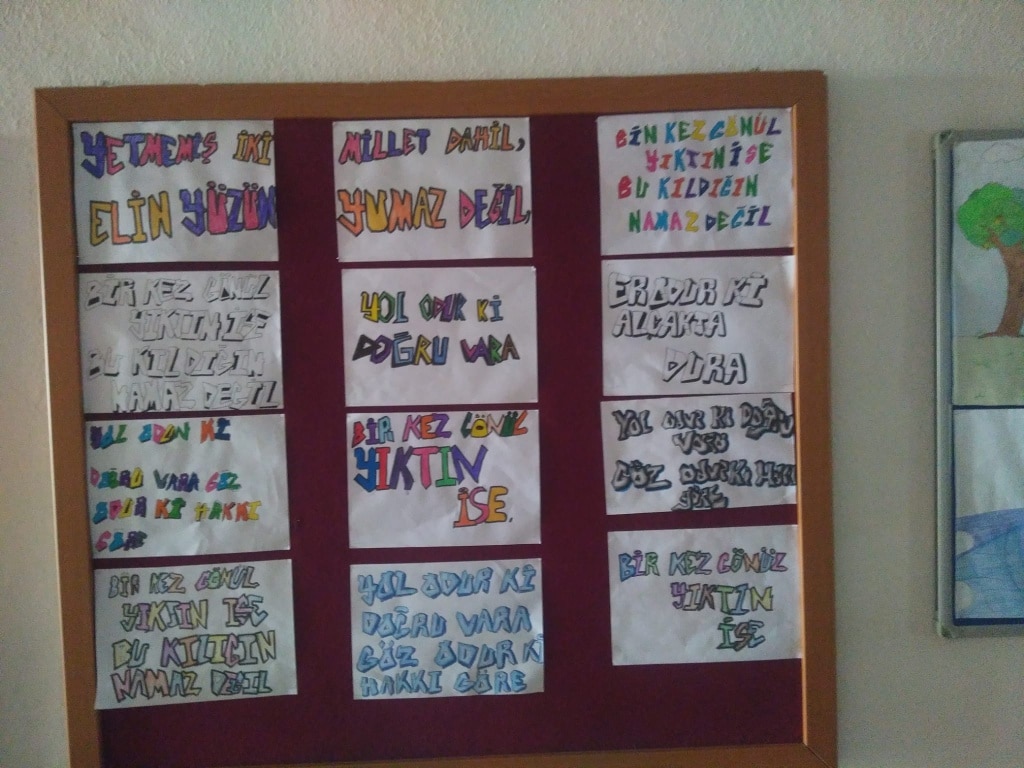 YETMEMİŞ İKİ
ELİN YÜZÜN
MİLLET DAHİL,
YUMAZ DEĞİL,
BİN KEZ GÖNÜL
YIKTIN İSE
BU KILDIĞIN
NAMAZ DEĞİL
BİR KEZ GÖNÜL
YIKTIN İSE
BU KILDIĞIN
NAMAZ DEĞİL
YOL ODUR Kİ
DOĞRU VARA
ER ODUR Kİ
ALÇAKTA
DURA
YOL ODUR Kİ
DOĞRU VARA GÖZ
Kİ HAKKI
BİR KEZ GÖNÜL
YIKTIN
İSE.
YOL ODUR Kİ DOĞRU
GÖZ ODUR Kİ
BİR KEZ GÖNÜL
YIKTIN İSE
BU KILICIN
NAMAZ DEĞİL
YOL ODUR Kİ
DOĞRU VARA
GÖZ ODUR Kİ
HAKKI GÖRE
BİR KEZ GÖNÜL
YIKTIN
İSE